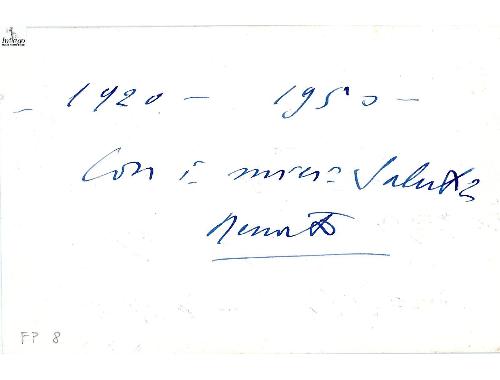 - 1920 - 1950 -
Con i miei Saluti
Renato
FP 8